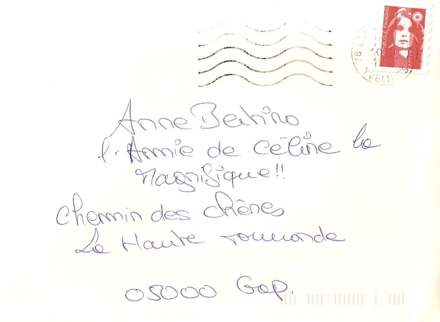 Anne Bertino
l'Amie de Céline la
Magnifique!!
Chemin des chênes
La Haute
05000 Gap.